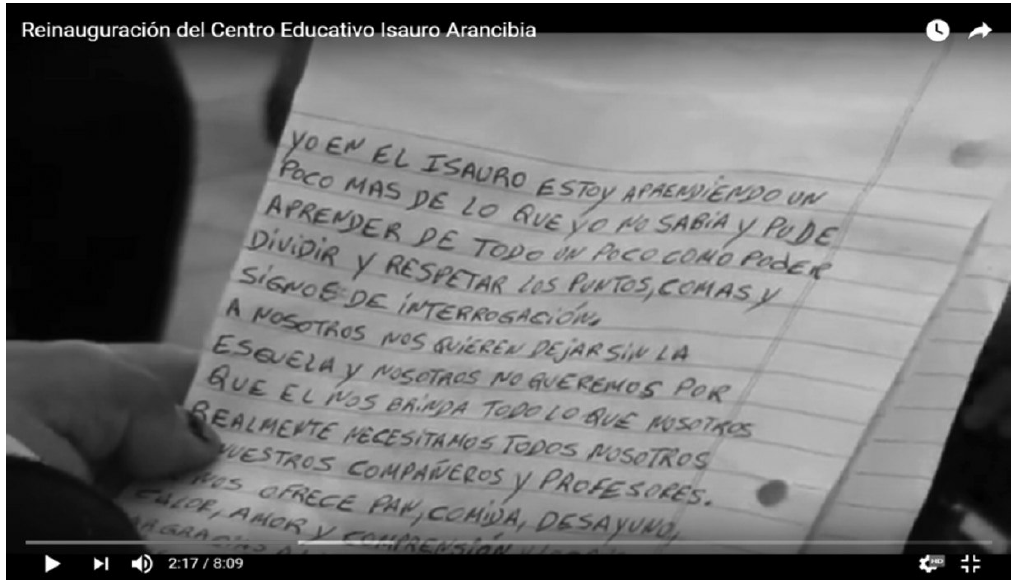 Reinauguración del Centro Educativo Isauro Arancibia
YO EN EL ISAURO ESTOY APRENDIENDO UN
POCO MAS DE LO QUE YO NO SABIA Y PUDE
APRENDER DE TODO UN POCO COMO PODER
DIVIDIR Y RESPETAR LOS PUNTOS, COMAS Y
SIGNOS DE INTERROGACIÓN.
A NOSOTROS NOS QUIEREN DEJAR SIN LA
ESCUELA Y NOSOTROS NO QUEREMOS POR
QUE EL NOS BRINDA TODO LO QUE NOSOTROS
REALMENTE NECESITAMOS TODOS NOSOTROS
NUESTROS COMPAÑEROS Y PROFESORES.
NOS OFRECE PAN, COMIDA, DESAYUNO,
CALOR, AMOR Y COMPRENSIÓN Y
2:17 / 8:09
HD